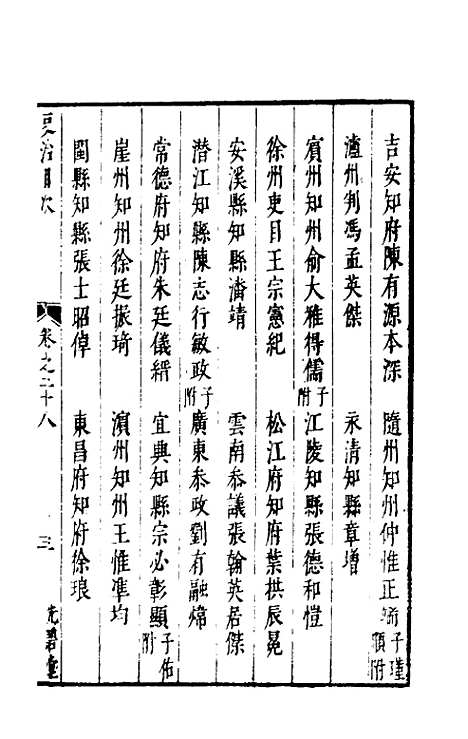 吉安知府陳有源本深　隨州知州仲惟正子瑾附
瀘州判馮孟英傑　永清知縣章增
賓州知州俞大雅得儒子附　江陵知縣張德和愷
徐州吏目王宗憲紀　松江府知府葉拱辰冕
安溪縣知縣潘靖　雲南參議張翰英居傑
潛江知縣陳志行敏政子附　廣東參政劉有融煒
常德府知府朱廷儀縉　宜興知縣宗必彰顯子佑附
崖州知州徐廷振琦　濱州知州王惟準均
閩縣知縣張士昭倬　東昌府知府徐琅
吏治目次　卷之二十八　三